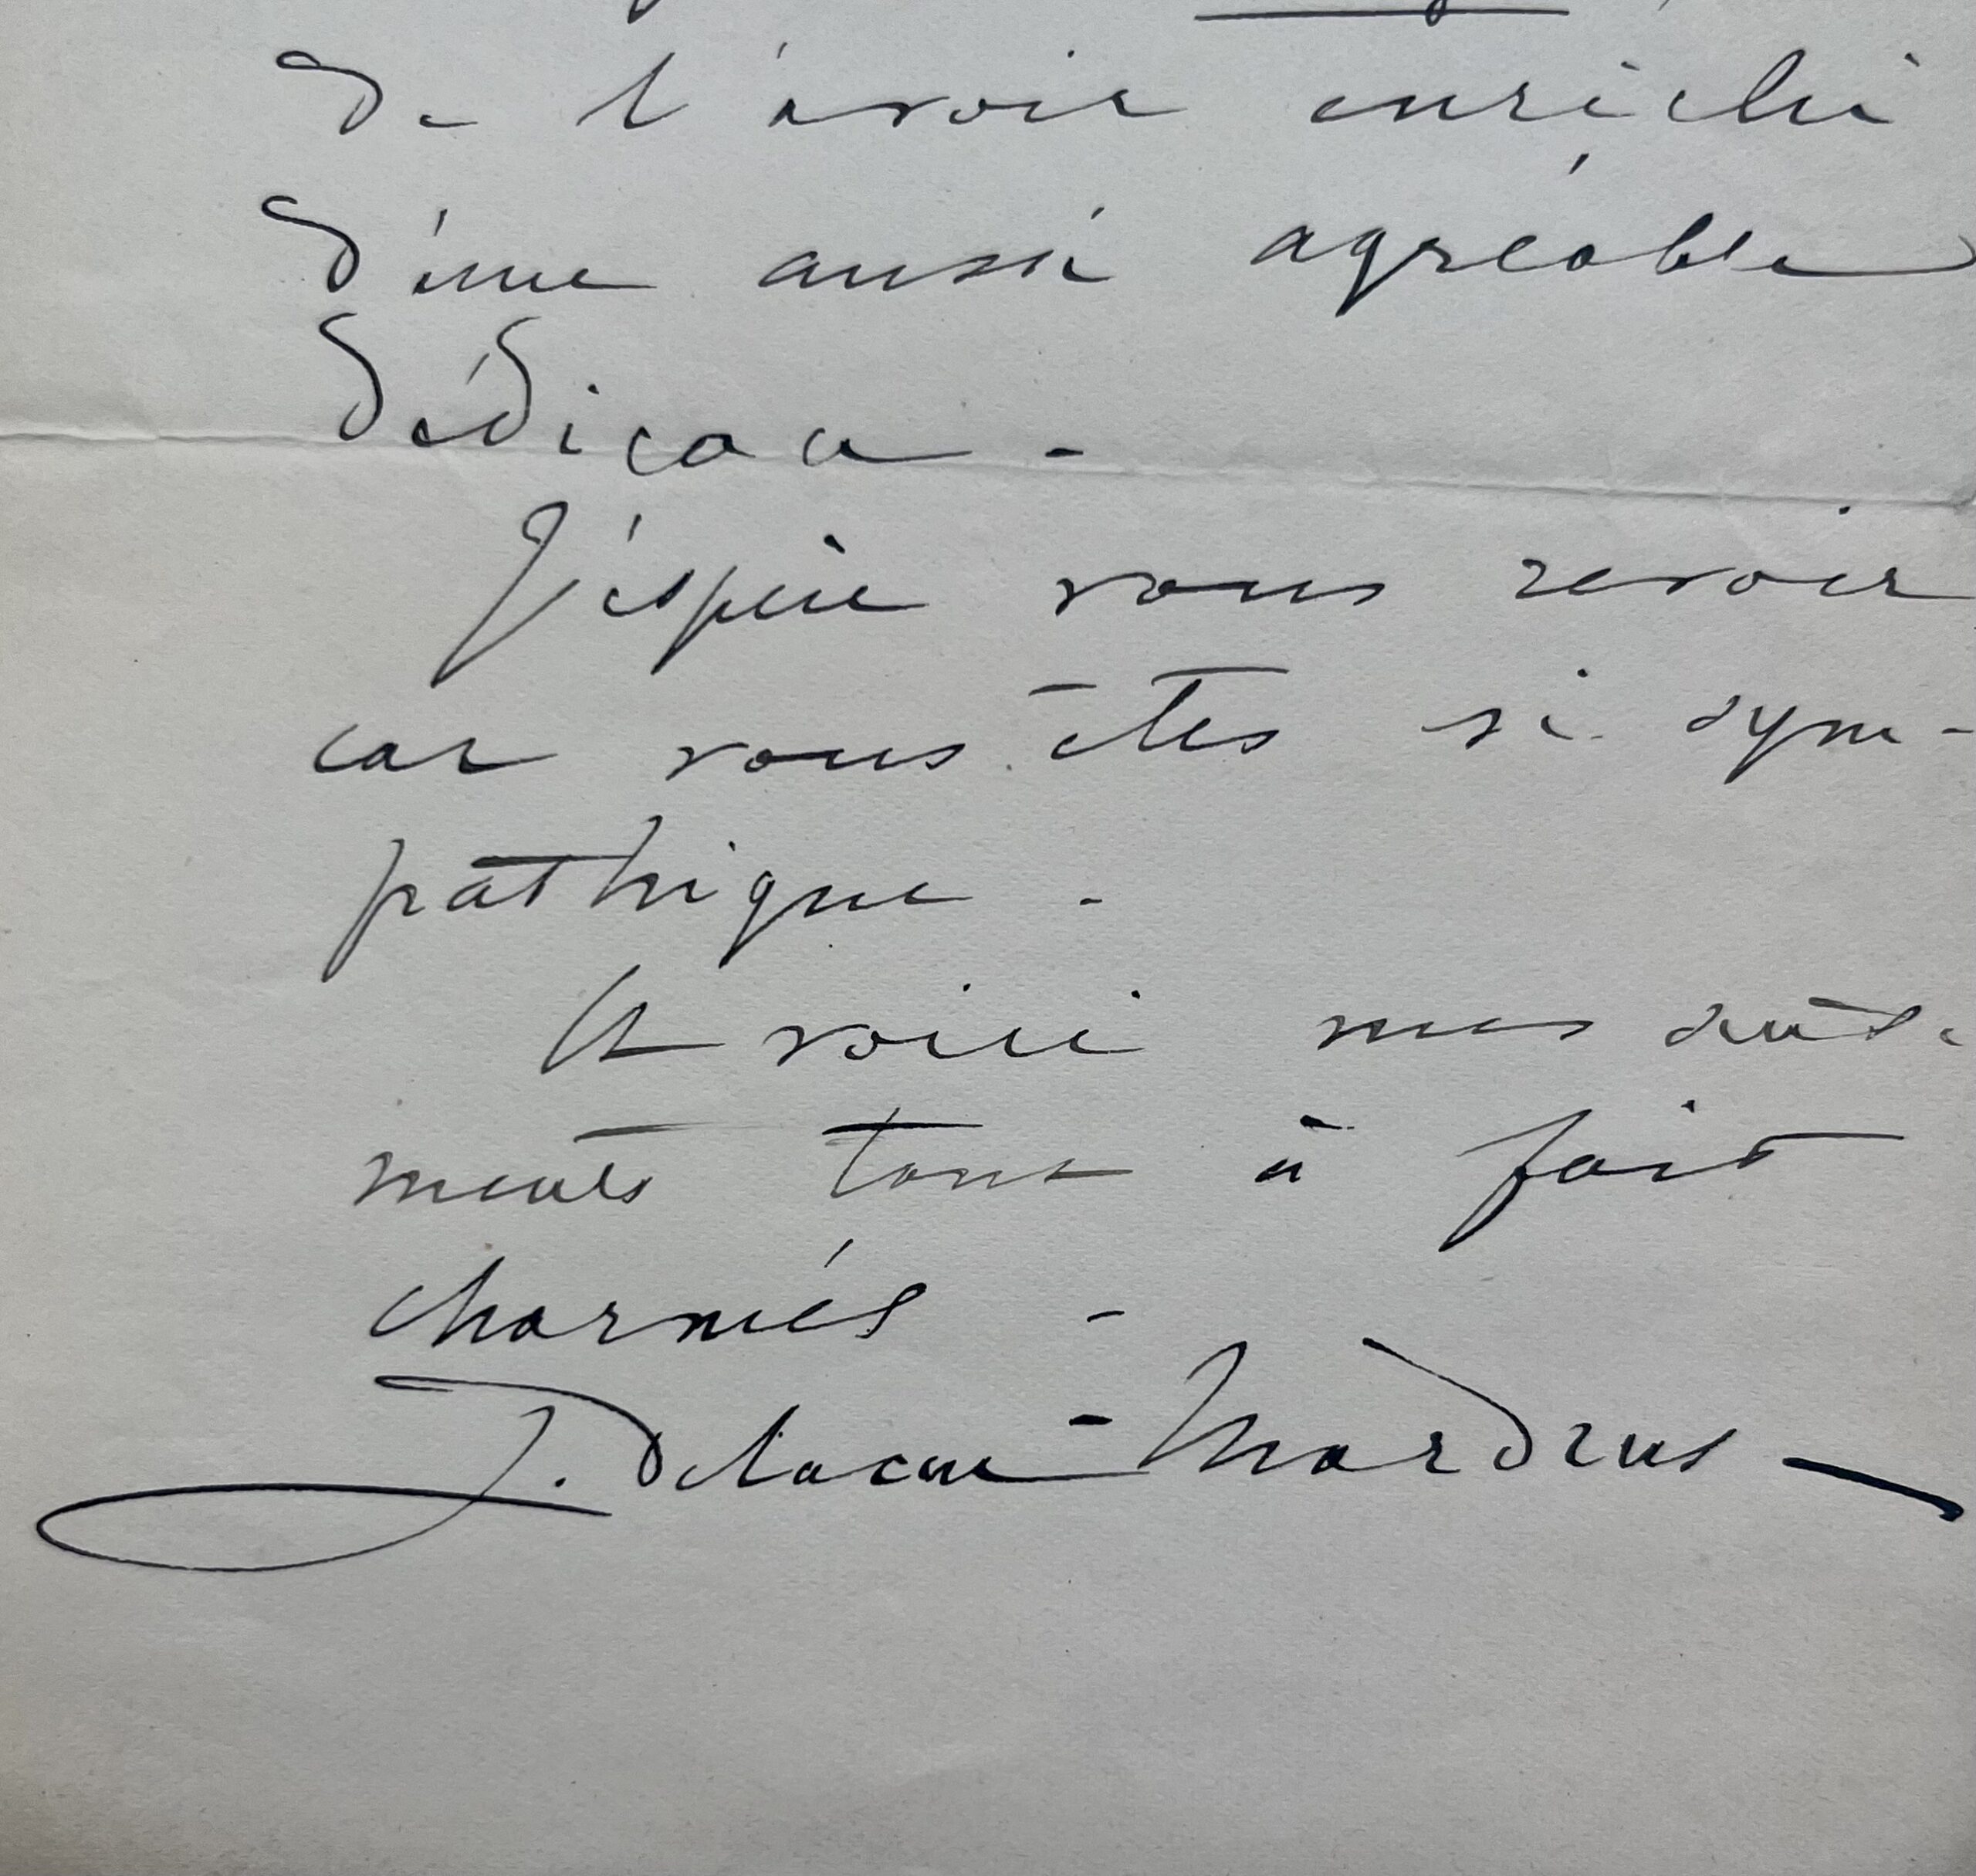 de l'avoir enrichi
d'une aussi agréable
dédicace -
J'espère vous revoir
car vous êtes si sym-
pathique .
Et voici mes senti-
ments tout à fait
charmés -
J. Delarue-Mardrus -